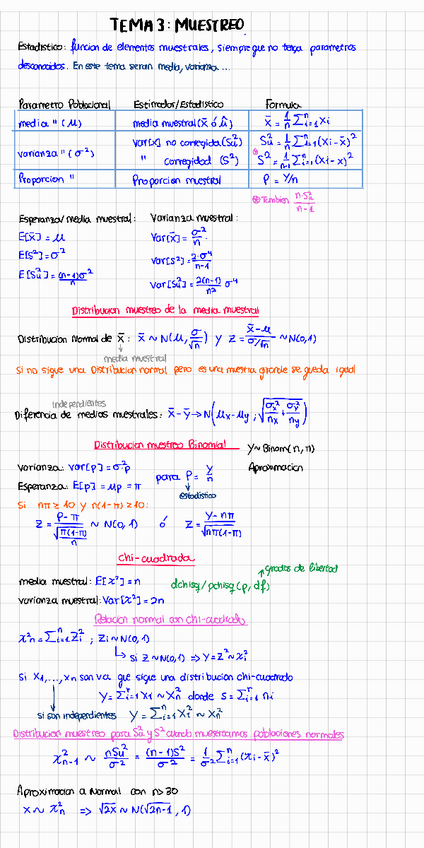 TEMA 3: MUESTREO
Estadístico: función de elementos muestrales, siempre que no tenga parametros
desconocidos. En este tema seran media, varianza...
Parametro Poblacional Estimador/Estadistico Formula
media " (μ) media muestral (x̄ ó μ̂) x̄ = 1/n ∑ⁿᵢ₌₁ xi
varianza " (σ²) var(x) no corregida (Sů) Sů = 1/n ∑ⁿᵢ₌₁ (xi - x̄)²
" corregidad (S²) ⊛ S² = 1/n-1 ∑ⁿᵢ₌₁ (xi - x)²
Proporcion " Proporcion muestral P = Y/n
⊛ Tambien n·Sů/n-1
Esperanza/media muestral: Varianza muestral:
E[x̄] = μ Var[x̄] = σ²/n
E[S²] = σ² Var[S²] = 2·σ⁴/n-1
E[Sů] = (n-1)σ²/n Var[Sů] = 2(n-1)/n² σ⁴
Distribucion muestreo de la media muestral
Distribucion Normal de x̄: x̄ ~ N(μ, σ/√n) y Z = x̄-μ/σ/√n ~ N(0,1)
media muestral
Si no sigue una Distribucion normal pero es una muestra grande se queda igual
independientes
Diferencia de medias muestrales: x̄ - ȳ → N(μx - μy, √σx²/nx + σy²/ny)
Distribucion muestreo Binomial Y ~ Binom(n, π)
varianza: var[p] = σ²p para P = Y/n Aproximacion
Esperanza: E[p] = μp = π estadístico
Si nπ ≥ 10 y n(1-π) ≥ 10:
Z = P-π/√π(1-π)/n ~ N(0,1) ó Z = Y-nπ/√nπ(1-π)
Chi-cuadrada
grados de libertad
media muestral: E[x²] = n dchisq/pchisq(p, df)
varianza muestral: Var[x²] = 2n
Relacion normal con chi-cuadrado
x²n = ∑ⁿᵢ₌₁ Zi²; Zi ~ N(0,1)
si Z ~ N(0,1) ⇒ Y = Z² ~ x₁²
Si X1,...,Xn son v.a. que sigue una distribucion chi-cuadrado
Y = ∑ⁿᵢ₌₁ Xi ~ Xs² donde s = ∑ⁿᵢ₌₁ ni
si son independientes Y = ∑ⁿᵢ₌₁ Xi² ~ Xn²
Distribucion muestreo para Sů y S² cuando muestreamos poblaciones normales
x²n-1 ~ nSů/σ² = (n-1)S²/σ² = 1/σ² ∑ⁿᵢ₌₁ (xi - x̄)²
Aproximacion a Normal con n>30
X ~ x²n ⇒ √2x ~ N(√2n-1, 1)